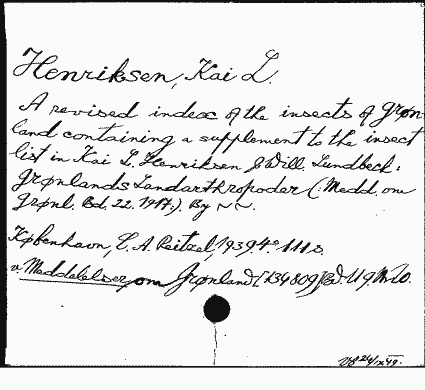 Henriksen, Kai L.
A revised index of the insects of Grøn-
land containing a supplement to the insect
list in Kai L. Henriksen & Will. Lundbeck:
Grønlands Landarthropoder (: Medd. om
Grønl. Bd. 22. 1917.). By ~ ~.
København, C. A. Reitzel, 1939. 4º. 111 s.
v. Meddelelser om Grønland [134809] Bd. 119 Nr. 10.
24/IX 49.